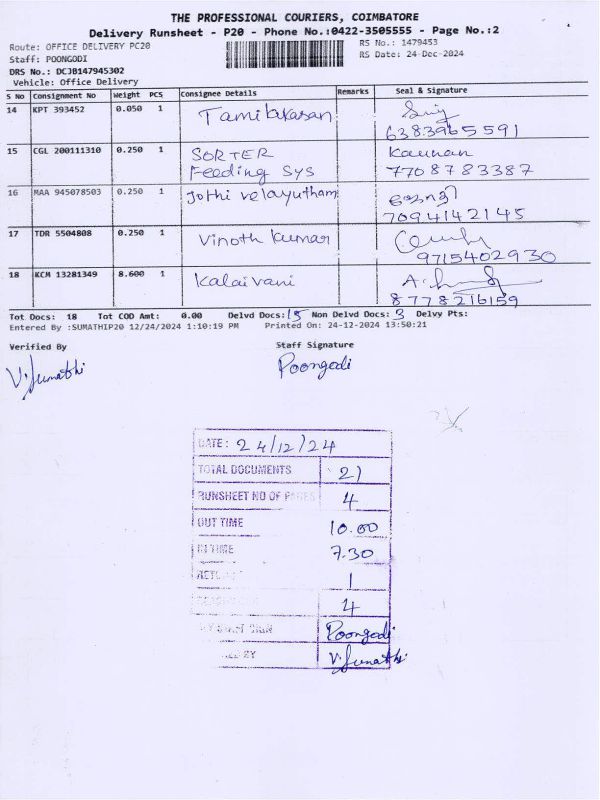 THE PROFESSIONAL COURIERS, COIMBATORE
Delivery Runsheet - P20 - Phone No.:0422-3505555 - Page No.:2
Route: OFFICE DELIVERY PC20 RS No.: 1479453
Staff: POONGODI RS Date: 24-Dec-2024
DRS No.: DCJB147945302
Vehicle: Office Delivery
S No Consignment No Weight PCS Consignee Details Remarks Seal & Signature
14 KPT 393452 0.050 1 Tamilarasan
6383965591
15 CGL 200111310 0.250 1 SORTER Kannan
Feeding Sys 7708783387
16 MAA 945078503 0.250 1 Jothi velayutham ஜோதி
7094142145
17 TDR 5504808 0.250 1 Vinoth kumar
9715402930
18 KCM 13281349 8.600 1 Kalaivani
8778216159
Tot Docs: 18 Tot COD Amt: 0.00 Delvd Docs: 15 Non Delvd Docs: 3 Delvy Pts:
Entered By :SUMATHIP20 12/24/2024 1:10:19 PM Printed On: 24-12-2024 13:50:21
Verified By Staff Signature
V. Sumathi Poongodi
DATE: 24/12/24
TOTAL DOCUMENTS 21
RUNSHEET NO OF PAGES 4
OUT TIME 10.00
IN TIME 7.30
1
4
SIGN Poongodi
BY V. Sumathi